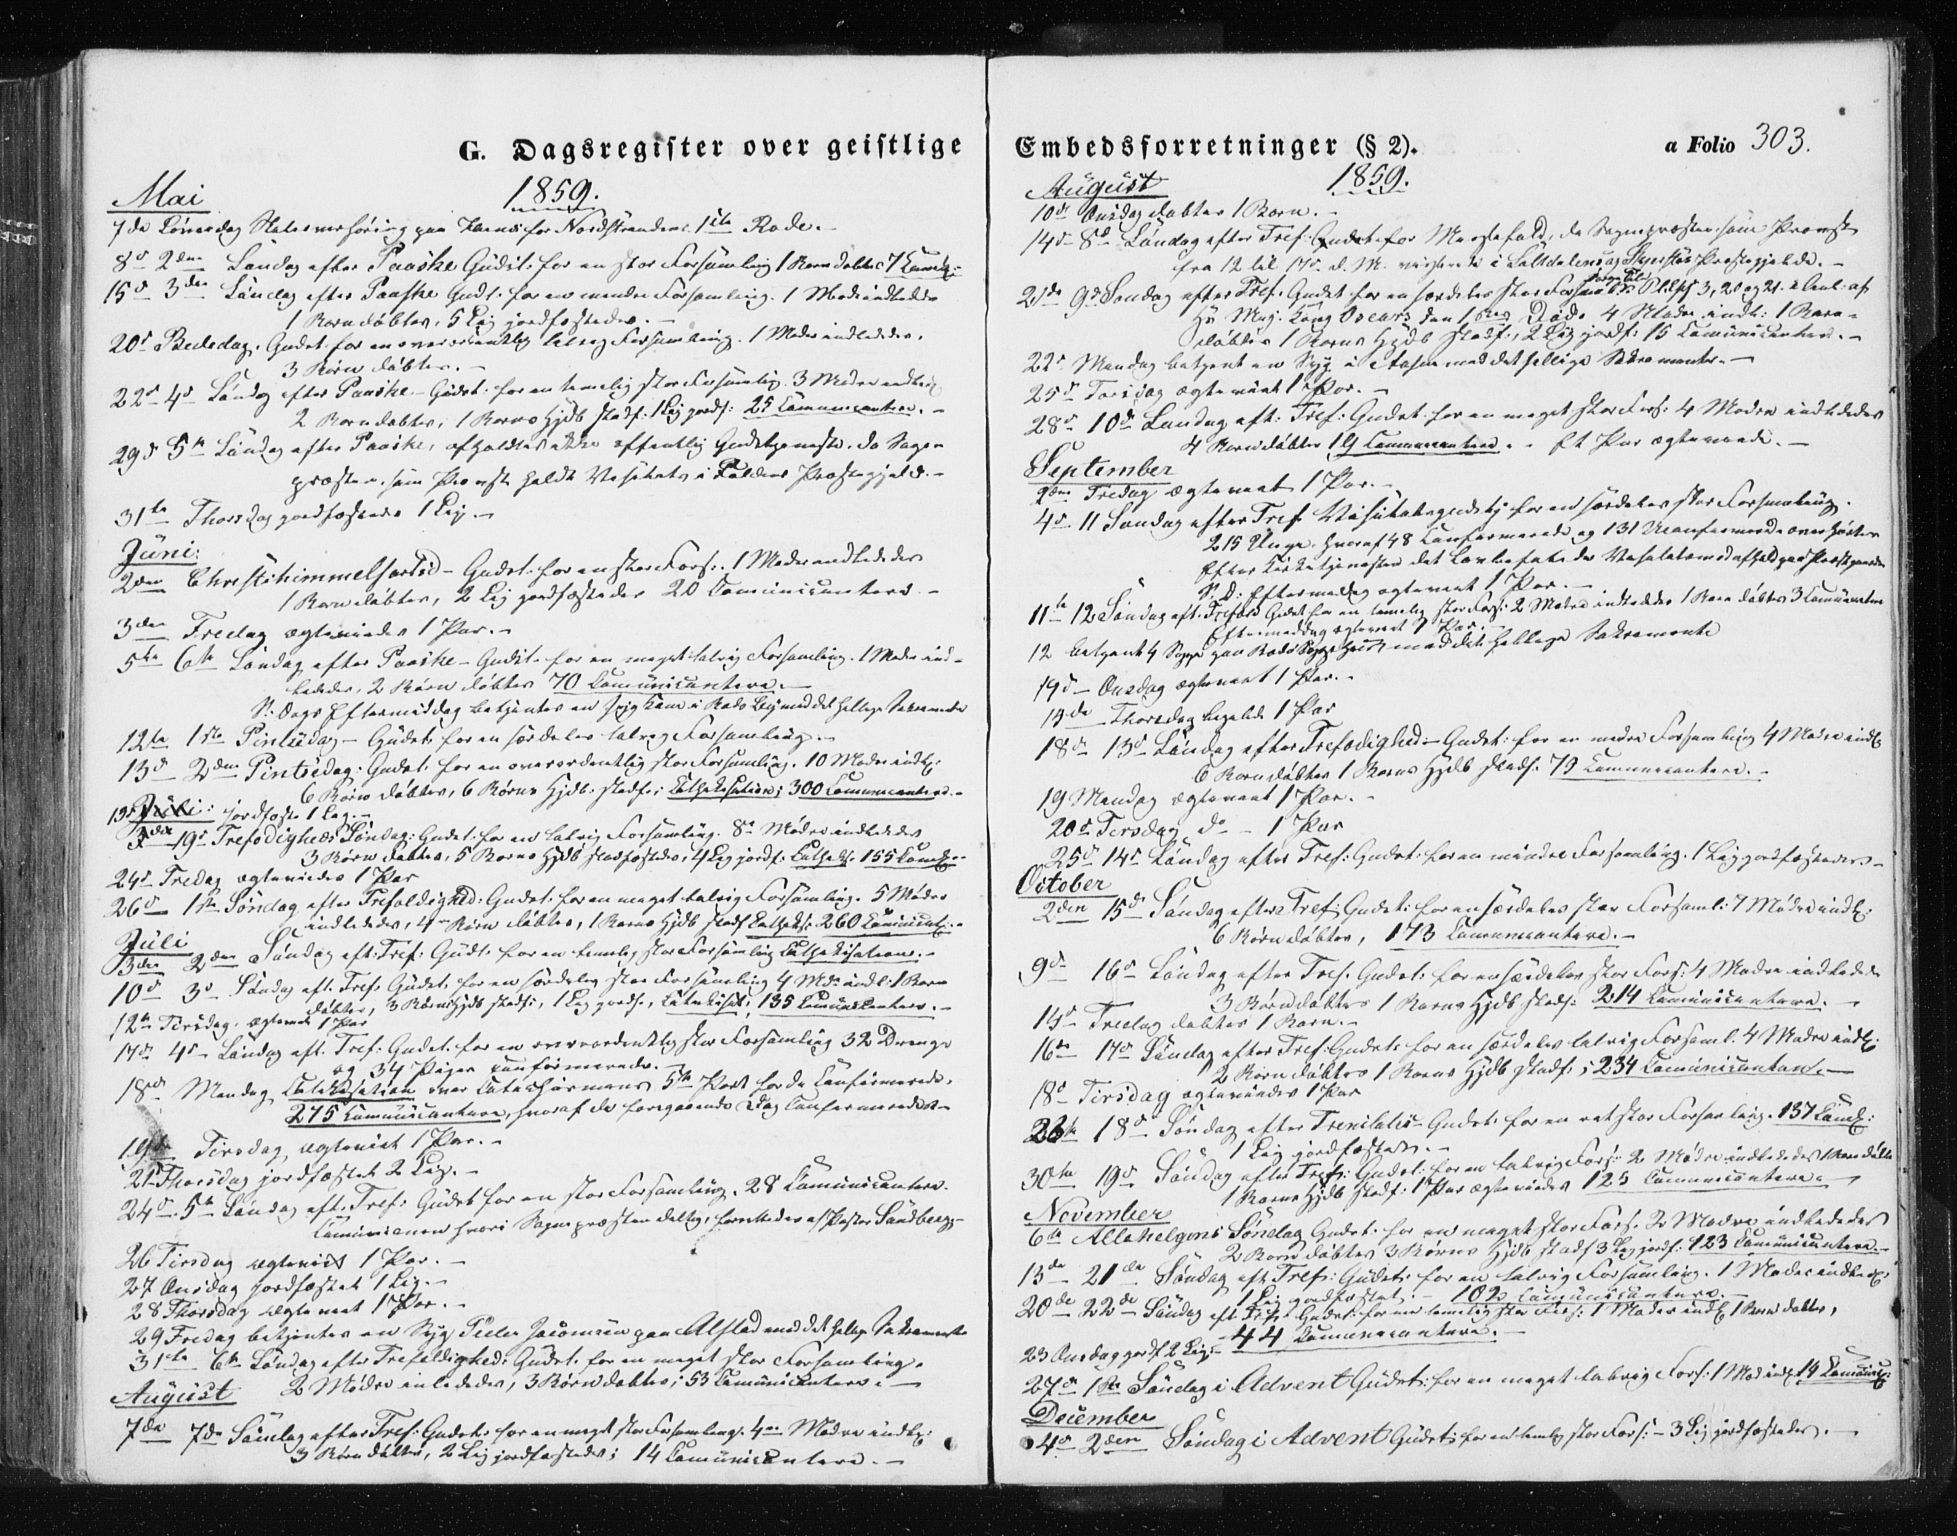 G. Dagsregister over geistlige
Mai 1859.
7de Löverdag paa for Nordstrandens 1ste Rode.
8d 2den Söndag efter Paaske Gudst: for en stor Forsamling 1 Barn döbtes 7 Comun:
15d 3die Söndag efter Paaske Gudst. for en mindre Forsamling. 1 Moder indlededes
1 Barn döbtes, 5 Lig jordfæstedes.
20d Bededag. Gudst: for en overordentlig talrig Forsamling. 1 Moder indlededes.
3 Börn döbtes.
22d 4d Söndag efter Paaske - Gudst: for en temelig stor Forsamlig. 3 Mödre indledt
2 Börn döbtes; 1 Barns Hjdb stadf: 1 Lig jordf: 25 Comunicantere.
29d 5te Söndag efter Paaske, afholdtes ikke offentlig Gudstjeneste, da Sogne-
præsten, som Provst holdt Visitats i Foldens Præstegjeld.
31te Thorsdag jordfæstede 1 Lig.
Juni:
2den Christihimmelfartsd - Gudst: for en stor Fors: 1 Moder indlededes
1 Barn döbtes, 2 Lig jordfæstedes 20 Comunicantere.
3die Fredag ægteviedes 1 Par.
5te 6te Söndag efter Paaske - Gudst. for en meget talrig Forsamling. 1 Moder ind-
lededes, 2 Börn döbtes 70 Comunicantere.
S. Dags Eftermiddag betjentes en syg Kone i med det hellige Sakramente
12te 1ste Pintsedag - Gudst: for en særdeles talrig Forsamling.
13d 2den Pintsedag: Gudst. for en overordentlig stor Forsamling. 10 Mödre indl:
6 Börn döbtes, 6 Börns Hjdb. stadf:; Cathekisation; 300 Comunicantere.
15d Juli: jordfæste 1 Lig.
3die 19d Trefoldigheds Söndag: Gudst: for en talrig Forsamling. 8te Mödre indlededes
3 Börn döbtes, 5 Börns Hjdb stadfæstedes, 4 Lig jordf: Cathek: 155 Comu:
24d Fredag ægteviedes 1 Par
26d 1ste Söndag efter Trefoldighed: Gudst: for en meget talrig Forsamling. 5 Mödre
indlededes, 4 Börn döbtes, 1 Barns Hjdb stadf Cathek: 260 Comunict:
Juli
3die 2den Söndag eft: Tref: Gudst: for en temelig stor Forsamling Cathekisation.
10d 3d Söndag eft. Tref. Gudst. for en særdeles stor Forsamling 4 Mdr indl: 1 Barn
döbtes, 3 Börns Hjdb stadf:, 1 Lig jordf:, Catekisat:, 135 Comunicantere.
12te Tirsdag. ægteviede 1 Par
17d 4d Söndag eft. Tref: Gudst. for en overordentlig stor Forsamling 32 Drenge
og 34 Piger confirmerede.
18d Mandag Catekisation over Catechismens 5te Part for de Confirmerede.
275 Comunicantere, hvoraf de foregaaende Dag Confirmerede.
19de Tirsdag ægteviet 1 Par.
21 Thorsdag jordfæstet 2 Lig.
24d 5te Söndag eft. Tref: Gudst for en stor Forsamling, 28 Comunicantere.
Comunionen hvori Sognepræsten deltog, forrettedes af Pastor Sandberg
26 Tirsdag ægteviet 1 Par.
27 Onsdag jordfæstet 1 Lig.
28 Thorsdag ægteviet 1 Par.
29 Fredag betjentes en Syg Peder Jacobsen paa Alstad med det hellige Sakramente
31te 6te Söndag efter Trefoldighed: Gudst. for en meget stor Forsamling.
August 2 Mödre inlededes, 3 Börn döbtes; 53 Comunicantere.
7de 7de Söndag efter Tref: Gudst: for en meget stor Forsamling. 4re Mödre indl:
3 Börn döbtes, 2 Lig jordfæstedes; 14 Comunicantere.
Embedsforretninger (§ 2). a Folio 303.
August 1859.
10de Onsdag döbtes 1 Barn.
14d 8d Söndag efter Tref: Gudst: for Messefald, da Sognepræsten som Provst
fra 12 til 17d d. M. visiterede i Saltdalens og Skjerstad Præstegjelde.
21de 9d Söndag efter Tref. Gudst for en særdeles stor Fors 3, 20 og 21. i Anl: af
Hs Maj: Kong Oscars den 1stes Död. 4 Mödre indl: 1 Barn
döbtes 1 Barns Hjdb stadf:, 2 Lig jordf: 15 Comunicantere.
22d Mandag betjent en Syg med det hellige Sakramente.
25d Torsdag ægteviet 1 Par.
28d 10de Söndag eft: Tref: Gudst: for en meget stor Fors: 4 Mödre indlededes
4 Börn döbtes 19 Comunicantere. Et Par ægteviede.
September
2den Fredag ægteviet 1 Par.
4d 11 Söndag efter Tref. Visitatsgudstj. for en særdeles stor Forsamling.
215 Unge, hvoraf 48 Confirmerede og 131 Uconfirmerede overhörtes
Efter Kirketjenesten det lovbefalede Visitatsmöde afholdt paa Præstegaarden
S. D: Eftermiddag ægteviet 1 Par.
11te 12 Söndag eft. Trefold Gudst for en temelig stor Fors: 2 Mödre indlededes 1 Barn döbtes 3 Comunicantere
Eftermiddag ægteviet 1 Par.
12 betjent 4 Syge paa Sygehuus med det hellige Sakramente
Onsdag ægteviet 1 Par.
Thorsdag 1 Par
18de 13d Söndag efter Trefoldighed - Gudst: for en mindre Forsamling 4 Mödre indl:
6 Börn döbtes 1 Barns Hjdb stadf: 79 Comunicantere.
19 Mandag ægteviet 1 Par.
20d Tirsdag do - 1 Par
25d 14d Söndag efter Tref: Gudst: for en mindre Forsamling. 1 Lig jordfæstedes
October
2den 15d Söndag efter Tref: Gudst: for en særdeles stor Forsaml: 7 Mödre indl:
6 Börn döbtes, 173 Comunicantere.
9d 16d Söndag efter Tref. Gudst: for en særdeles stor Fors: 4 Mödre indlededes
3 Börn döbtes 1 Barns Hjdb stadf: 214 Comunicantere.
14d Fredag döbtes 1 Barn.
16de 17d Söndag efter Tref: Gudst: for en særdeles talrig Forsaml. 4 Mödre indl:
2 Börn döbtes 1 Barns Hjdb stadf:; 234 Comunicantere.
18d Tirsdag ægteviedes 1 Par
18d Söndag efter Trinitatis Gudst: for en ret stor Forsamling. 137 Comu:
1 Lig jordfæstedes.
30te 19d Söndag efter Tref: Gudst: for en talrig Fors: 2 Mödre indlededes 1 Barn döbtes
1 Barns Hjdb stadf: 1 Par ægteviedes 125 Comunicantere.
November
6te Allehelgens Söndag Gudst: for en meget stor Fors. 2 Mödre indlededes
2 Börn döbtes 3 Börns Hjdb stadf 3 Lig jordf: 123 Comunicantere.
13de 21de Söndag eft Tref: Gudst: for en talrig Forsamling. 1 Moder indl:
1 Lig jordfæstet. - 102 Comunicantere.
20de 22de Söndag eft Tref: Gudst: for en temelig stor Fors: 1 Moder indl: 1 Barn döbtes,
44 Comunicantere.
23 Onsdag jordf 2 Lig.
27d 1ste Söndag i Advent Gudst: for en meget talrig Fors: 1 Mod indl: 14 Comunict:
December
4d 2den Söndag i Advent Gudst: for en temelig stor Fors: - 3 Lig jordfæstedes.